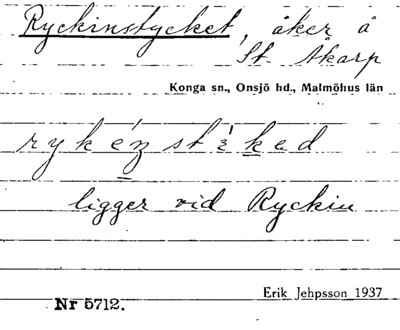 Ryckinstycket, åker å
St. Akarp
Konga sn., Onsjö hd., Malmöhus län
ligger vid Ryckin
Erik Jehpsson 1937
Nr 5712.